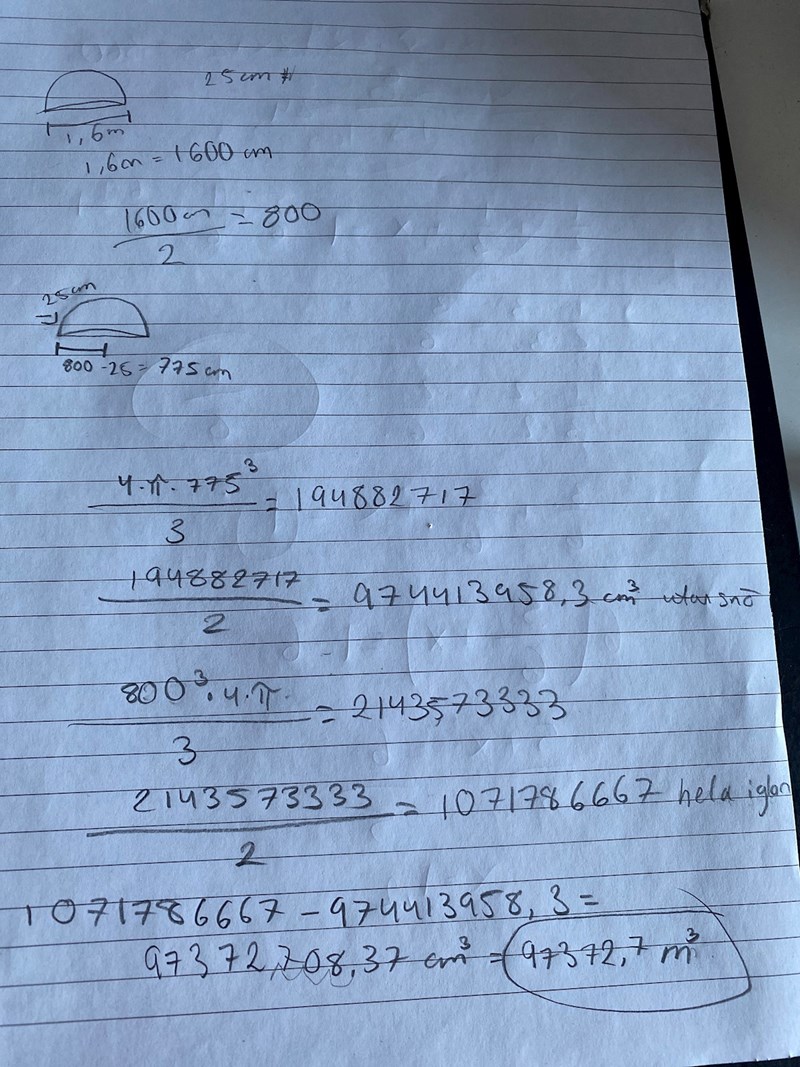 25cm
1,6m
1,6m = 1600 cm
1600cm / 2 = 800
25cm
800 - 25 = 775 cm
4·π·775³ / 3 = 194882717
194882717 / 2 = 974413958,3 cm³ utan snö
800³·4·π. / 3 = 2143573333
2143573333 / 2 = 1071786667 hela iglon
1071786667 - 974413958,3 =
97372,708,37 cm³ = 97372,7 m³